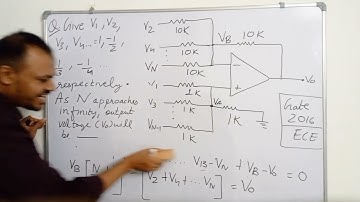 Q. Give V1, V2,
V3, V4, ... = 1, -1/2,
1/3, -1/4 ...
respectively.
As N approaches
infinity, output
voltage (Vo) will
be
V2
10K
V4
10K
VN
10K
V1
1K
V3
1K
VN-1
1K
VB
10K
Va
1K
Vo
Gate
2016
ECE
VB [N
... VB-VN + VB-Vo = 0
[V2+V4+ ... VN] = Vo